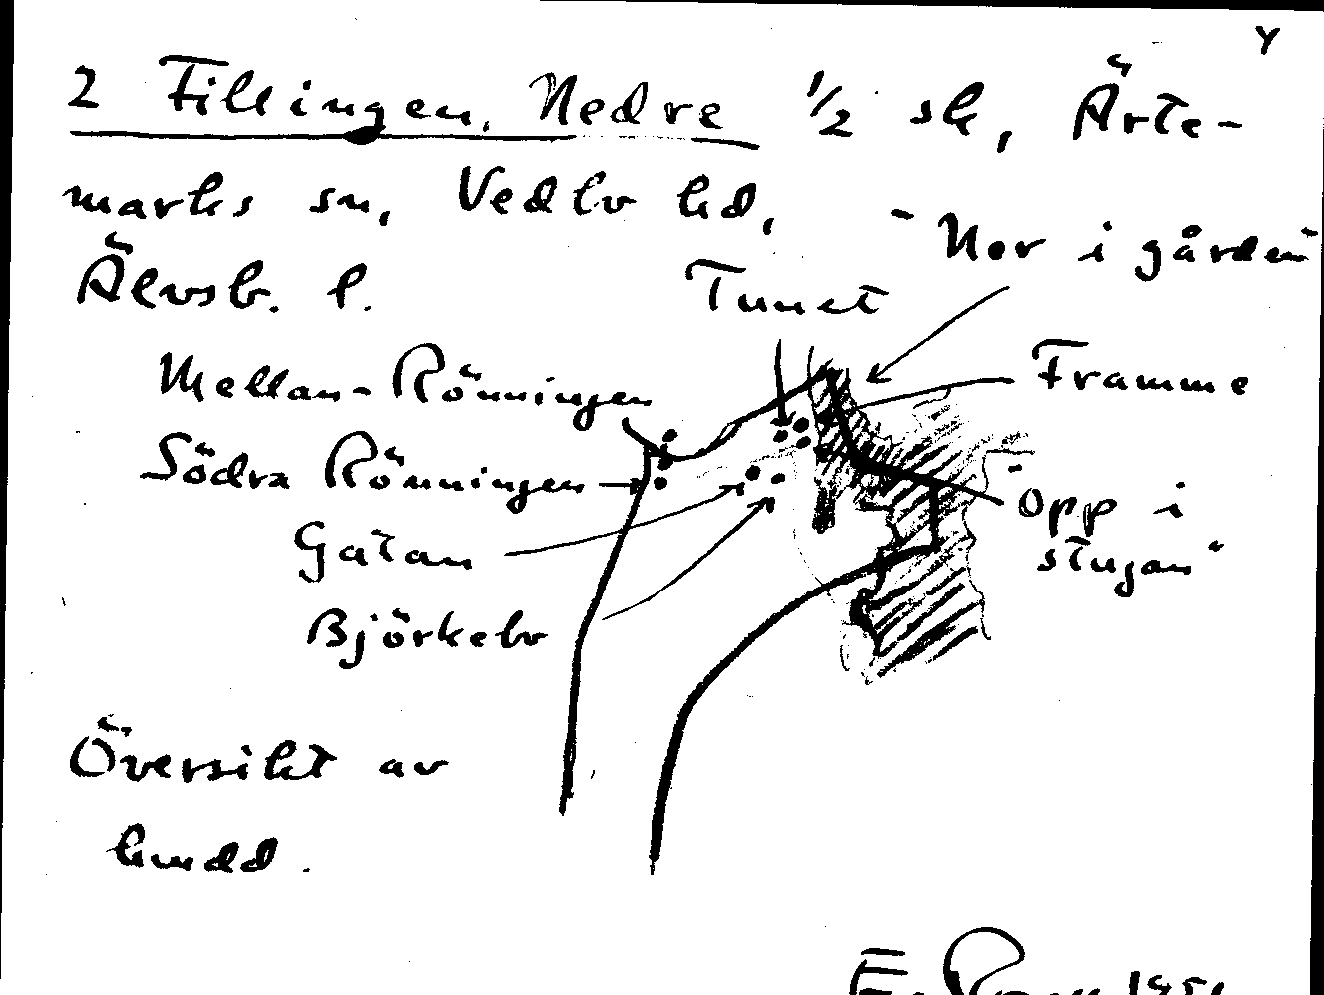 Y
2 Fillingen, Nedre 1/2 sk, Ärte-
marks sn, Vedbo hd,
Älvsb. l.
"Nor i gården"
Tunet
Mellan-Rönningen
Framme
Södra Rönningen
"Opp i
stugan"
Gatan
Björkebo
Översikt av
hmdd.